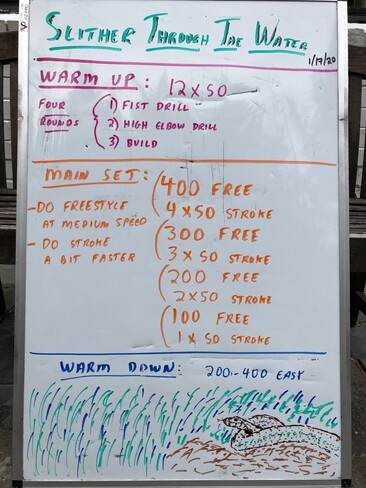 SLITHER THROUGH THE WATER
1/17/20
WARM UP: 12 x 50
FOUR ROUNDS
1) FIST DRILL
2) HIGH ELBOW DRILL
3) BUILD
MAIN SET:
- DO FREESTYLE
AT MEDIUM SPEED
- DO STROKE
A BIT FASTER
400 FREE
4 x 50 STROKE
300 FREE
3 x 50 STROKE
200 FREE
2 x 50 STROKE
100 FREE
1 x 50 STROKE
WARM DOWN: 200-400 EASY